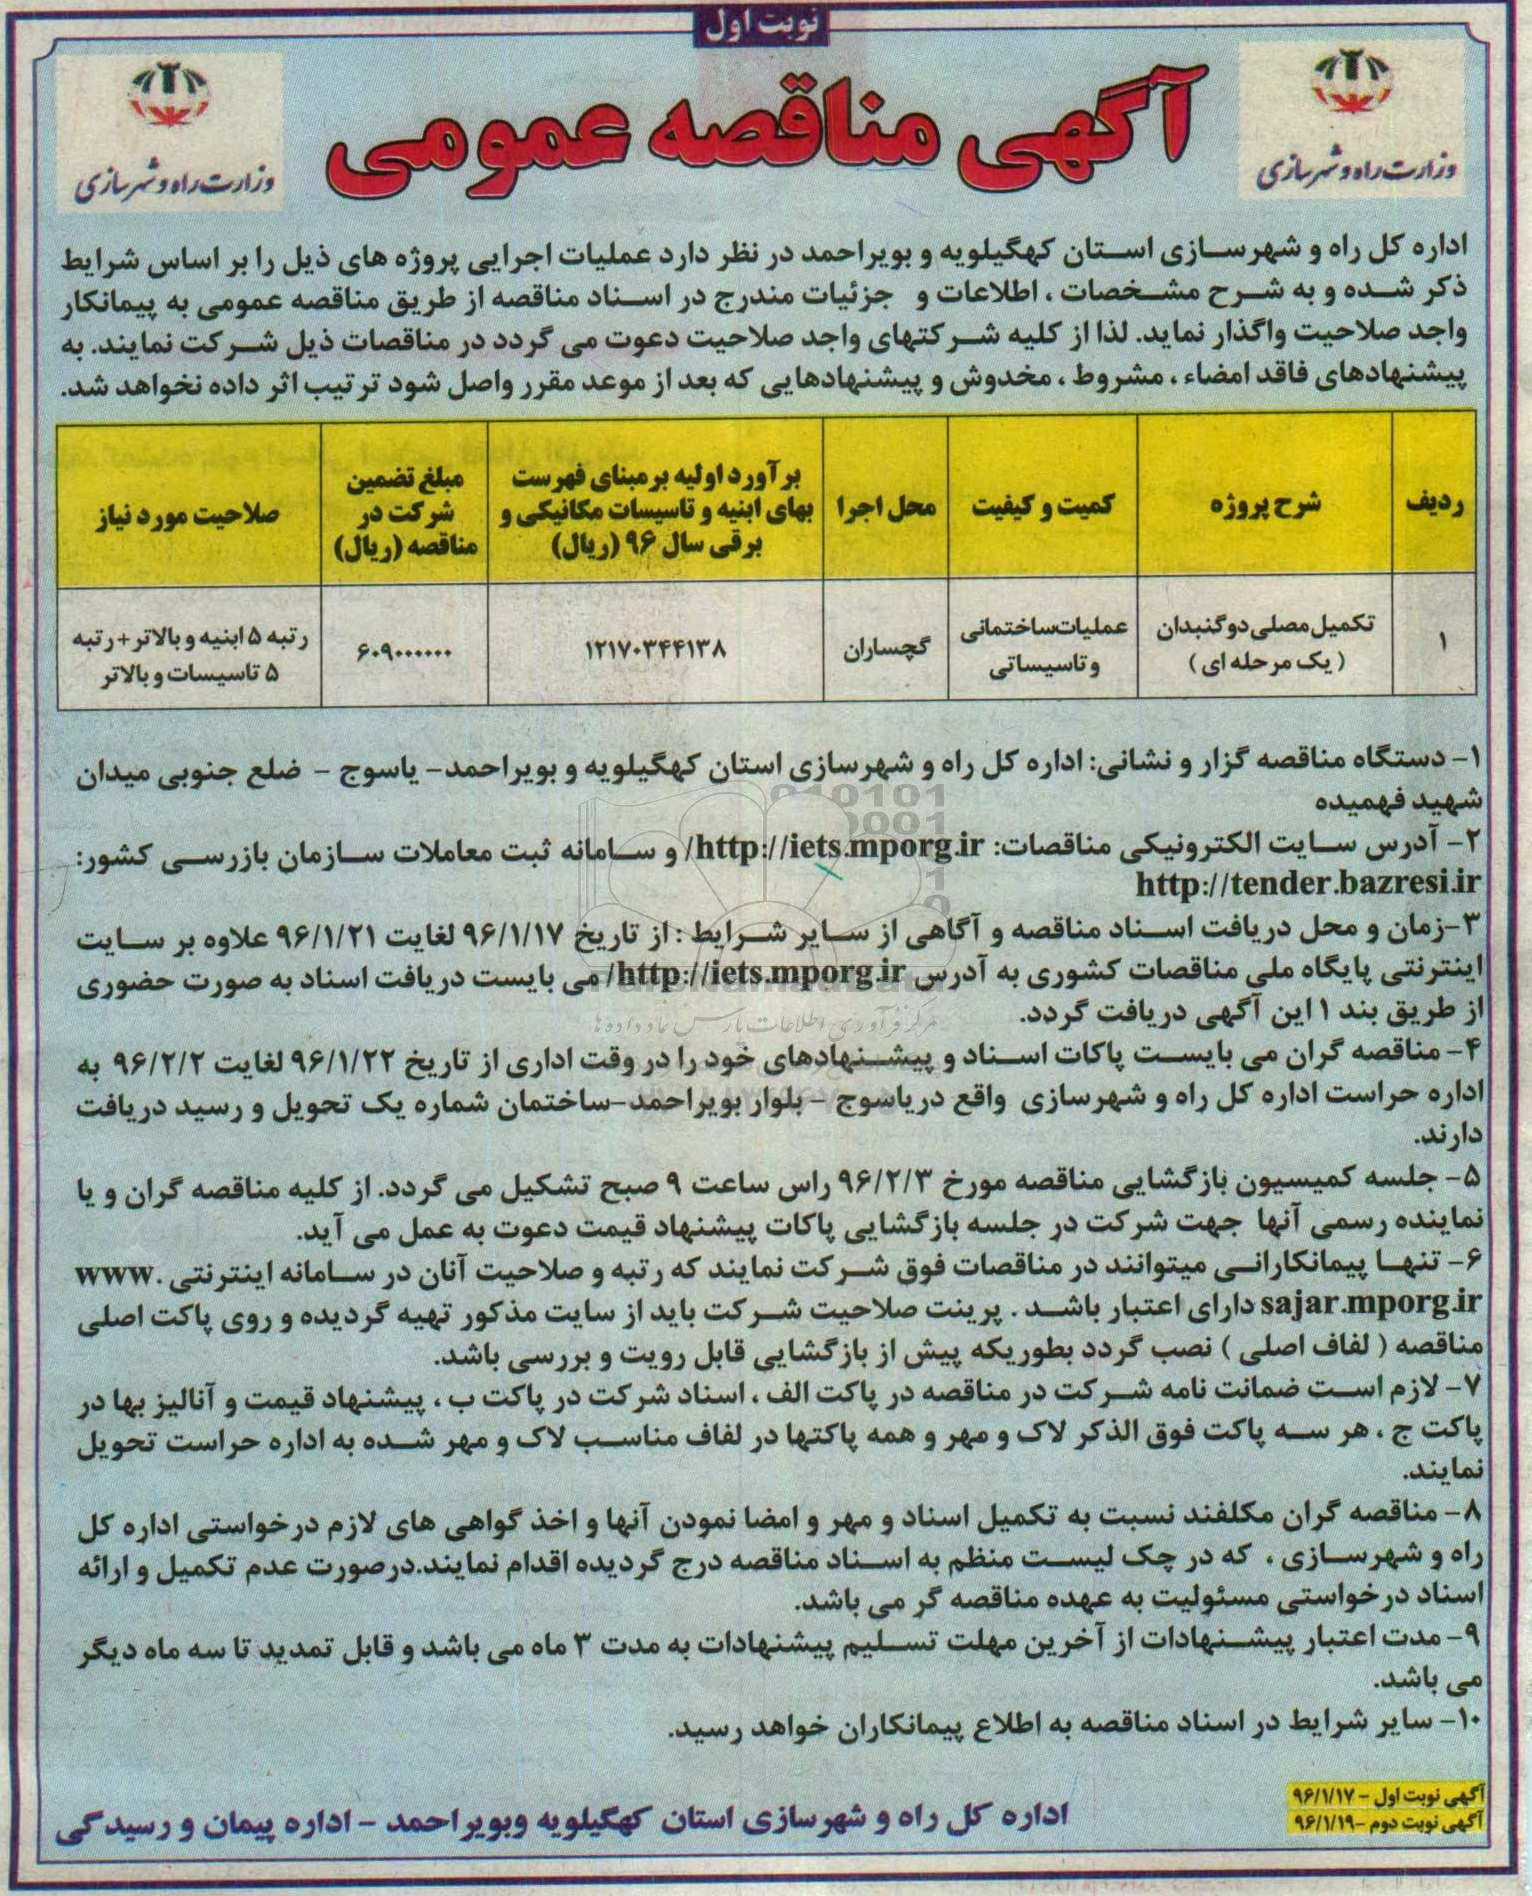 نوبت اول
آگهی مناقصه عمومی
وزارت راه و شهرسازی
وزارت راه و شهرسازی
اداره کل راه و شهرسازی استان کهگیلویه و بویراحمد در نظر دارد عملیات اجرایی پروژه های ذیل را بر اساس شرایط
ذکر شده و به شرح مشخصات ، اطلاعات و جزئیات مندرج در اسناد مناقصه از طریق مناقصه عمومی به پیمانکار
واجد صلاحیت واگذار نماید. لذا از کلیه شرکتهای واجد صلاحیت دعوت می گردد در مناقصات ذیل شرکت نمایند. به
پیشنهادهای فاقد امضاء ، مشروط ، مخدوش و پیشنهادهایی که بعد از موعد مقرر واصل شود ترتیب اثر داده نخواهد شد.
ردیف
شرح پروژه
کمیت و کیفیت
محل اجرا
برآورد اولیه بر مبنای فهرست
بهای ابنیه و تاسیسات مکانیکی و
برقی سال ۹۶ (ریال)
مبلغ تضمین
شرکت در
مناقصه (ریال)
صلاحیت مورد نیاز
۱
تکمیل مصلی دوگنبدان
( یک مرحله ای )
عملیات ساختمانی
و تاسیساتی
گچساران
۱۲۱۷۰۳۴۴۱۳۸
۶۰۹۰۰۰۰۰۰
رتبه ۵ ابنیه و بالاتر + رتبه
۵ تاسیسات و بالاتر
۱- دستگاه مناقصه گزار و نشانی: اداره کل راه و شهرسازی استان کهگیلویه و بویراحمد- یاسوج - ضلع جنوبی میدان
شهید فهمیده
۲- آدرس سایت الکترونیکی مناقصات: http://iets.mporg.ir/ و سامانه ثبت معاملات سازمان بازرسی کشور:
http://tender.bazresi.ir
۳-زمان و محل دریافت اسناد مناقصه و آگاهی از سایر شرایط : از تاریخ ۹۶/۱/۱۷ لغایت ۹۶/۱/۲۱ علاوه بر سایت
اینترنتی پایگاه ملی مناقصات کشوری به آدرس http://iets.mporg.ir/ می بایست دریافت اسناد به صورت حضوری
از طریق بند ۱ این آگهی دریافت گردد.
۴- مناقصه گران می بایست پاکات اسناد و پیشنهادهای خود را در وقت اداری از تاریخ ۹۶/۱/۲۲ لغایت ۹۶/۲/۲ به
اداره حراست اداره کل راه و شهرسازی واقع در یاسوج - بلوار بویراحمد-ساختمان شماره یک تحویل و رسید دریافت
دارند.
۵- جلسه کمیسیون بازگشایی مناقصه مورخ ۹۶/۲/۳ راس ساعت ۹ صبح تشکیل می گردد. از کلیه مناقصه گران و یا
نماینده رسمی آنها جهت شرکت در جلسه بازگشایی پاکات پیشنهاد قیمت دعوت به عمل می آید.
۶- تنها پیمانکارانی میتوانند در مناقصات فوق شرکت نمایند که رتبه و صلاحیت آنان در سامانه اینترنتی www.
sajar.mporg.ir دارای اعتبار باشد . پرینت صلاحیت شرکت باید از سایت مذکور تهیه گردیده و روی پاکت اصلی
مناقصه ( لفاف اصلی ) نصب گردد بطوریکه پیش از بازگشایی قابل رویت و بررسی باشد.
۷- لازم است ضمانت نامه شرکت در مناقصه در پاکت الف ، اسناد شرکت در پاکت ب ، پیشنهاد قیمت و آنالیز بها در
پاکت ج ، هر سه پاکت فوق الذکر لاک و مهر و همه پاکتها در لفاف مناسب لاک و مهر شده به اداره حراست تحویل
نمایند.
۸- مناقصه گران مکلفند نسبت به تکمیل اسناد و مهر و امضا نمودن آنها و اخذ گواهی های لازم درخواستی اداره کل
راه و شهرسازی ، که در چک لیست منظم به اسناد مناقصه درج گردیده اقدام نمایند.درصورت عدم تکمیل و ارائه
اسناد درخواستی مسئولیت به عهده مناقصه گر می باشد.
۹- مدت اعتبار پیشنهادات از آخرین مهلت تسلیم پیشنهادات به مدت ۳ ماه می باشد و قابل تمدید تا سه ماه دیگر
می باشد.
۱۰- سایر شرایط در اسناد مناقصه به اطلاع پیمانکاران خواهد رسید.
آگهی نوبت اول - ۹۶/۱/۱۷
آگهی نوبت دوم -۹۶/۱/۱۹
اداره کل راه و شهرسازی استان کهگیلویه وبویراحمد - اداره پیمان و رسیدگی